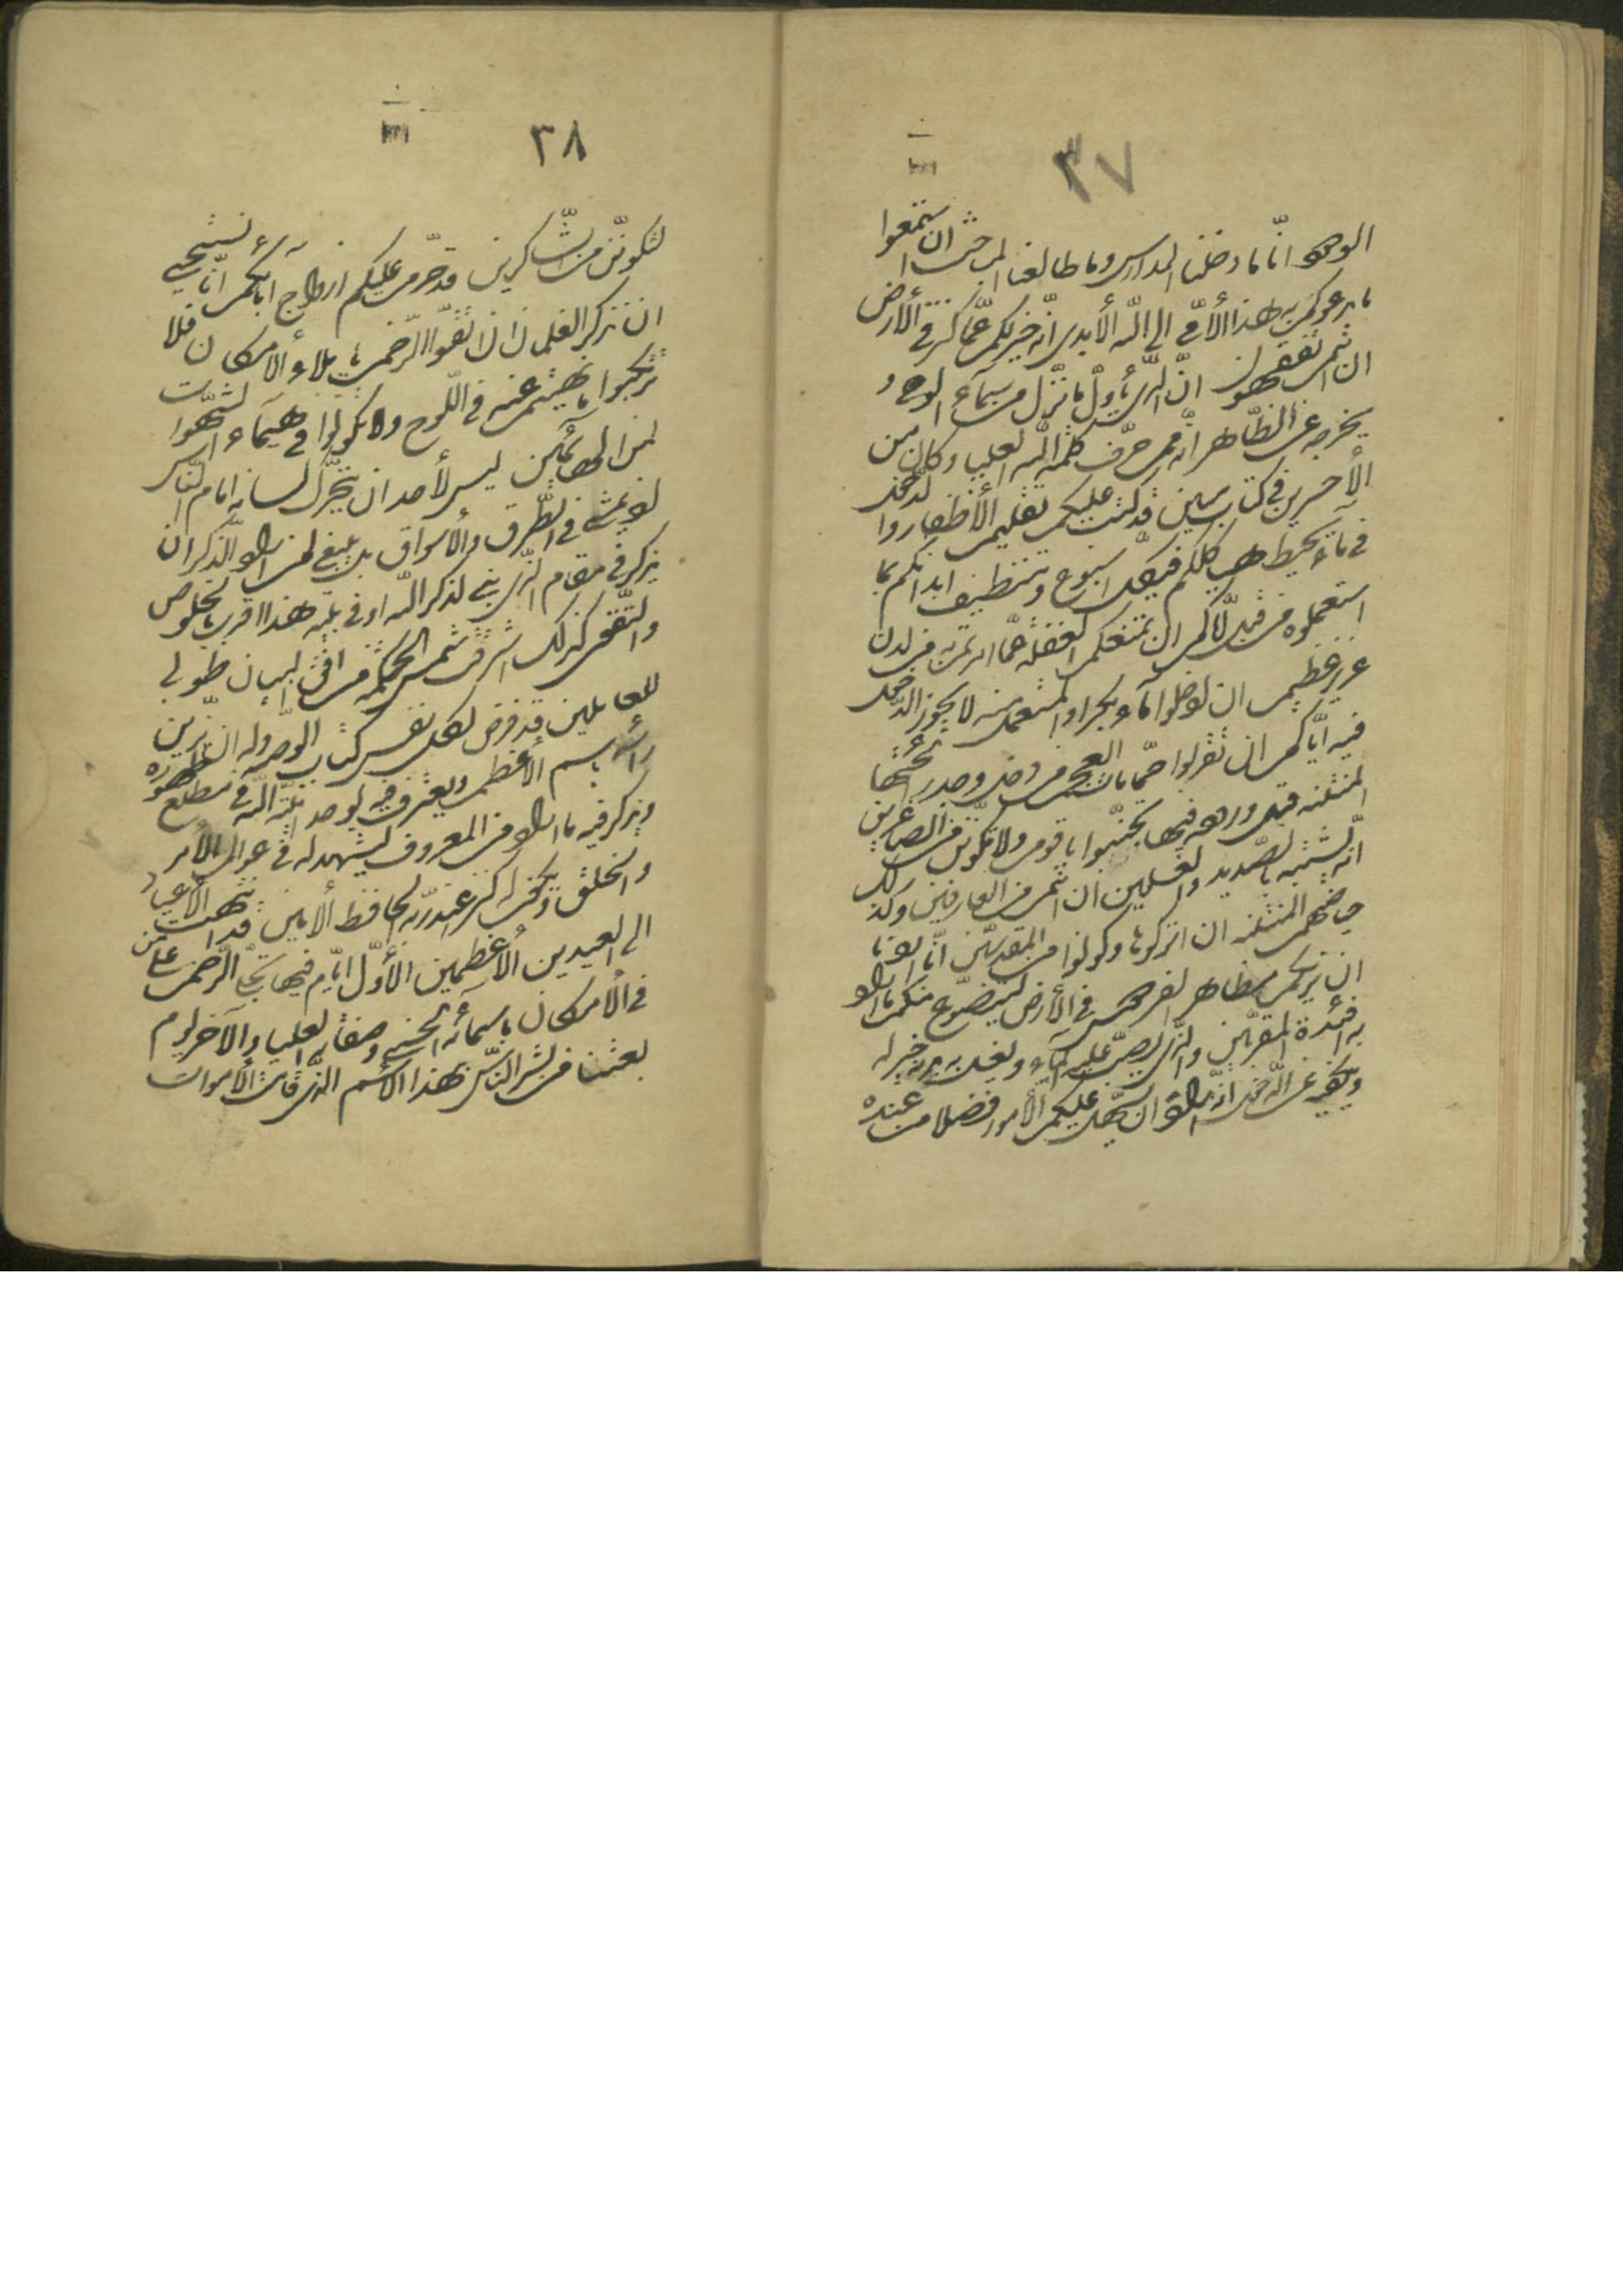 ٣٧
الوحی انّا ما دخلنا المدارس وما طالعنا المباحث ان استمعوا
ما یدعوکم به هذا الأمّی الی الله الأبدی انّه خیر لکم عمّا کنز فی الأرض
ان انتم تفقهون انّ الّذی یأوّل ما نزّل من سمآء الوحی و
یخرجه عن الظّاهر انّه ممّن حرّف کلمة الله العلیا و کان من
الأخسرین فی کتاب مبین قد کتب علیکم تقلیم الأظفار والدّخول
فی مآء یحیط هیاکلکم فی کلّ اسبوع و تنظیف ابدانکم بما
استعملوه من قبل ایّاکم ان تمنعکم الغفلة عمّا امرتم به من لدن
عزیز عظیم ان ادخلوا مآء بکراً و المستعمل منه لا یجوز الدّخول
فیه ایّاکم ان تقربوا خزائن حمّامات العجم من قصدها وجد رائحتها
المنتنة قبل وروده فیها تجنّبوا یا قوم ولا تکوننّ من الصّاغرین
انّه یشبه بالصّدید والغسلین ان انتم من العارفین وکذلک
حیاضهم المنتنة ان اترکوها وکونوا من المقدّسین انّا اردنا
ان نریکم مظاهر الفردوس فی الأرض لیتضوّع منکم ما تفرح
به افئدة المقرّبین والّذی یصبّ علیه المآء ویغسل به بدنه خیر له
ویکفیه عن الدّخول انّه اراد ان یسهّل علیکم الأمور فضلا من عنده
٣٨
لتکوننّ من الشّاکرین قد حرّمت علیکم ازواج آبائکم انّا نستحیی
ان نذکر حکم الغلمان اتّقوا الرّحمن یا ملأ الأمکان ولا
ترتکبوا ما نهیتم عنه فی اللّوح ولا تکونوا فی هیمآء الشّهوات
من الهائمین لیس لأحد ان یحرّک لسانه امام النّاس
اذ یمشی فی الطّرق والأسواق بل ینبغی لمن اراد الذّکر ان
یذکر فی مقام الّذی بنی لذکر الله او فی بیته هذا اقرب بالخلوص
والتّقوی کذلک اشرقت شمس الحکم من افق البیان طوبی
للعاملین قد فرض لکلّ نفس کتاب الوصیّة وله ان یزیّن
رأسه بالأسم الأعظم ویعترف فیه بوحدانیّة الله فی مطلع ظهوره
ویذکر فیه ما اراد من المعروف لیشهد له فی عوالم الأمر
والخلق ویکون له کنزا عند ربّه الحافظ الأمین قد انتهت الأعیاد
الی العیدین الأعظمین الأوّل ایّام فیها تجلّی الرّحمن علی من
فی الأمکان بأسمائه الحسنی وصفاته العلیا والآخر یوم
بعثنا من بشّر النّاس بهذا الأسم الّذی قامت الأموات